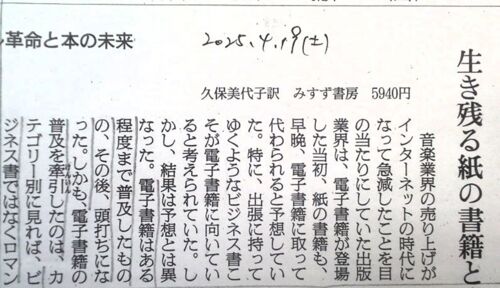 ル革命と本の未来
2025.4.19(土)
久保美代子訳 みすず書房 5940円
生き残る紙の書籍と
音楽業界の売り上げが
インターネットの時代に
なって急減したことを目
の当たりにしていた出版
業界は、電子書籍が登場
した当初、紙の書籍も、
早晩、電子書籍に取って
代わられると予想してい
た。特に、出張に持って
ゆくようなビジネス書こ
そが電子書籍に向いてい
ると考えられていた。し
かし、結果は予想とは異
なった。電子書籍はある
程度まで普及したもの
の、その後、頭打ちにな
った。しかも、電子書籍の
普及を牽引したのは、カ
テゴリー別に見れば、ビ
ジネス書ではなくロマン